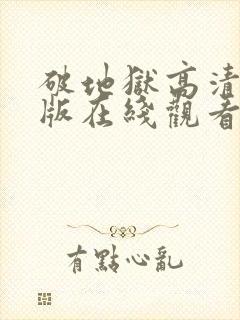 破地獄高清
版在綫觀看
有點心亂